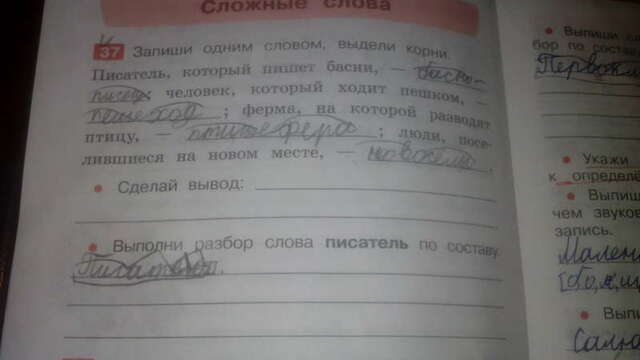 Сложные слова
37 Запиши одним словом, выдели корни.
Писатель, который пишет басни, — басно-
писец; человек, который ходит пешком, —
пешеход ; ферма, на которой разводят
птицу, — ; люди, посе-
лившиеся на новом месте, — новоселы .
• Сделай вывод:
• Выполни разбор слова писатель по составу.
Писатель.
• Выпиши
бор по состав
• Укажи
к определё
• Выпиш
чем звуков
запись.
Мален
• Выпи